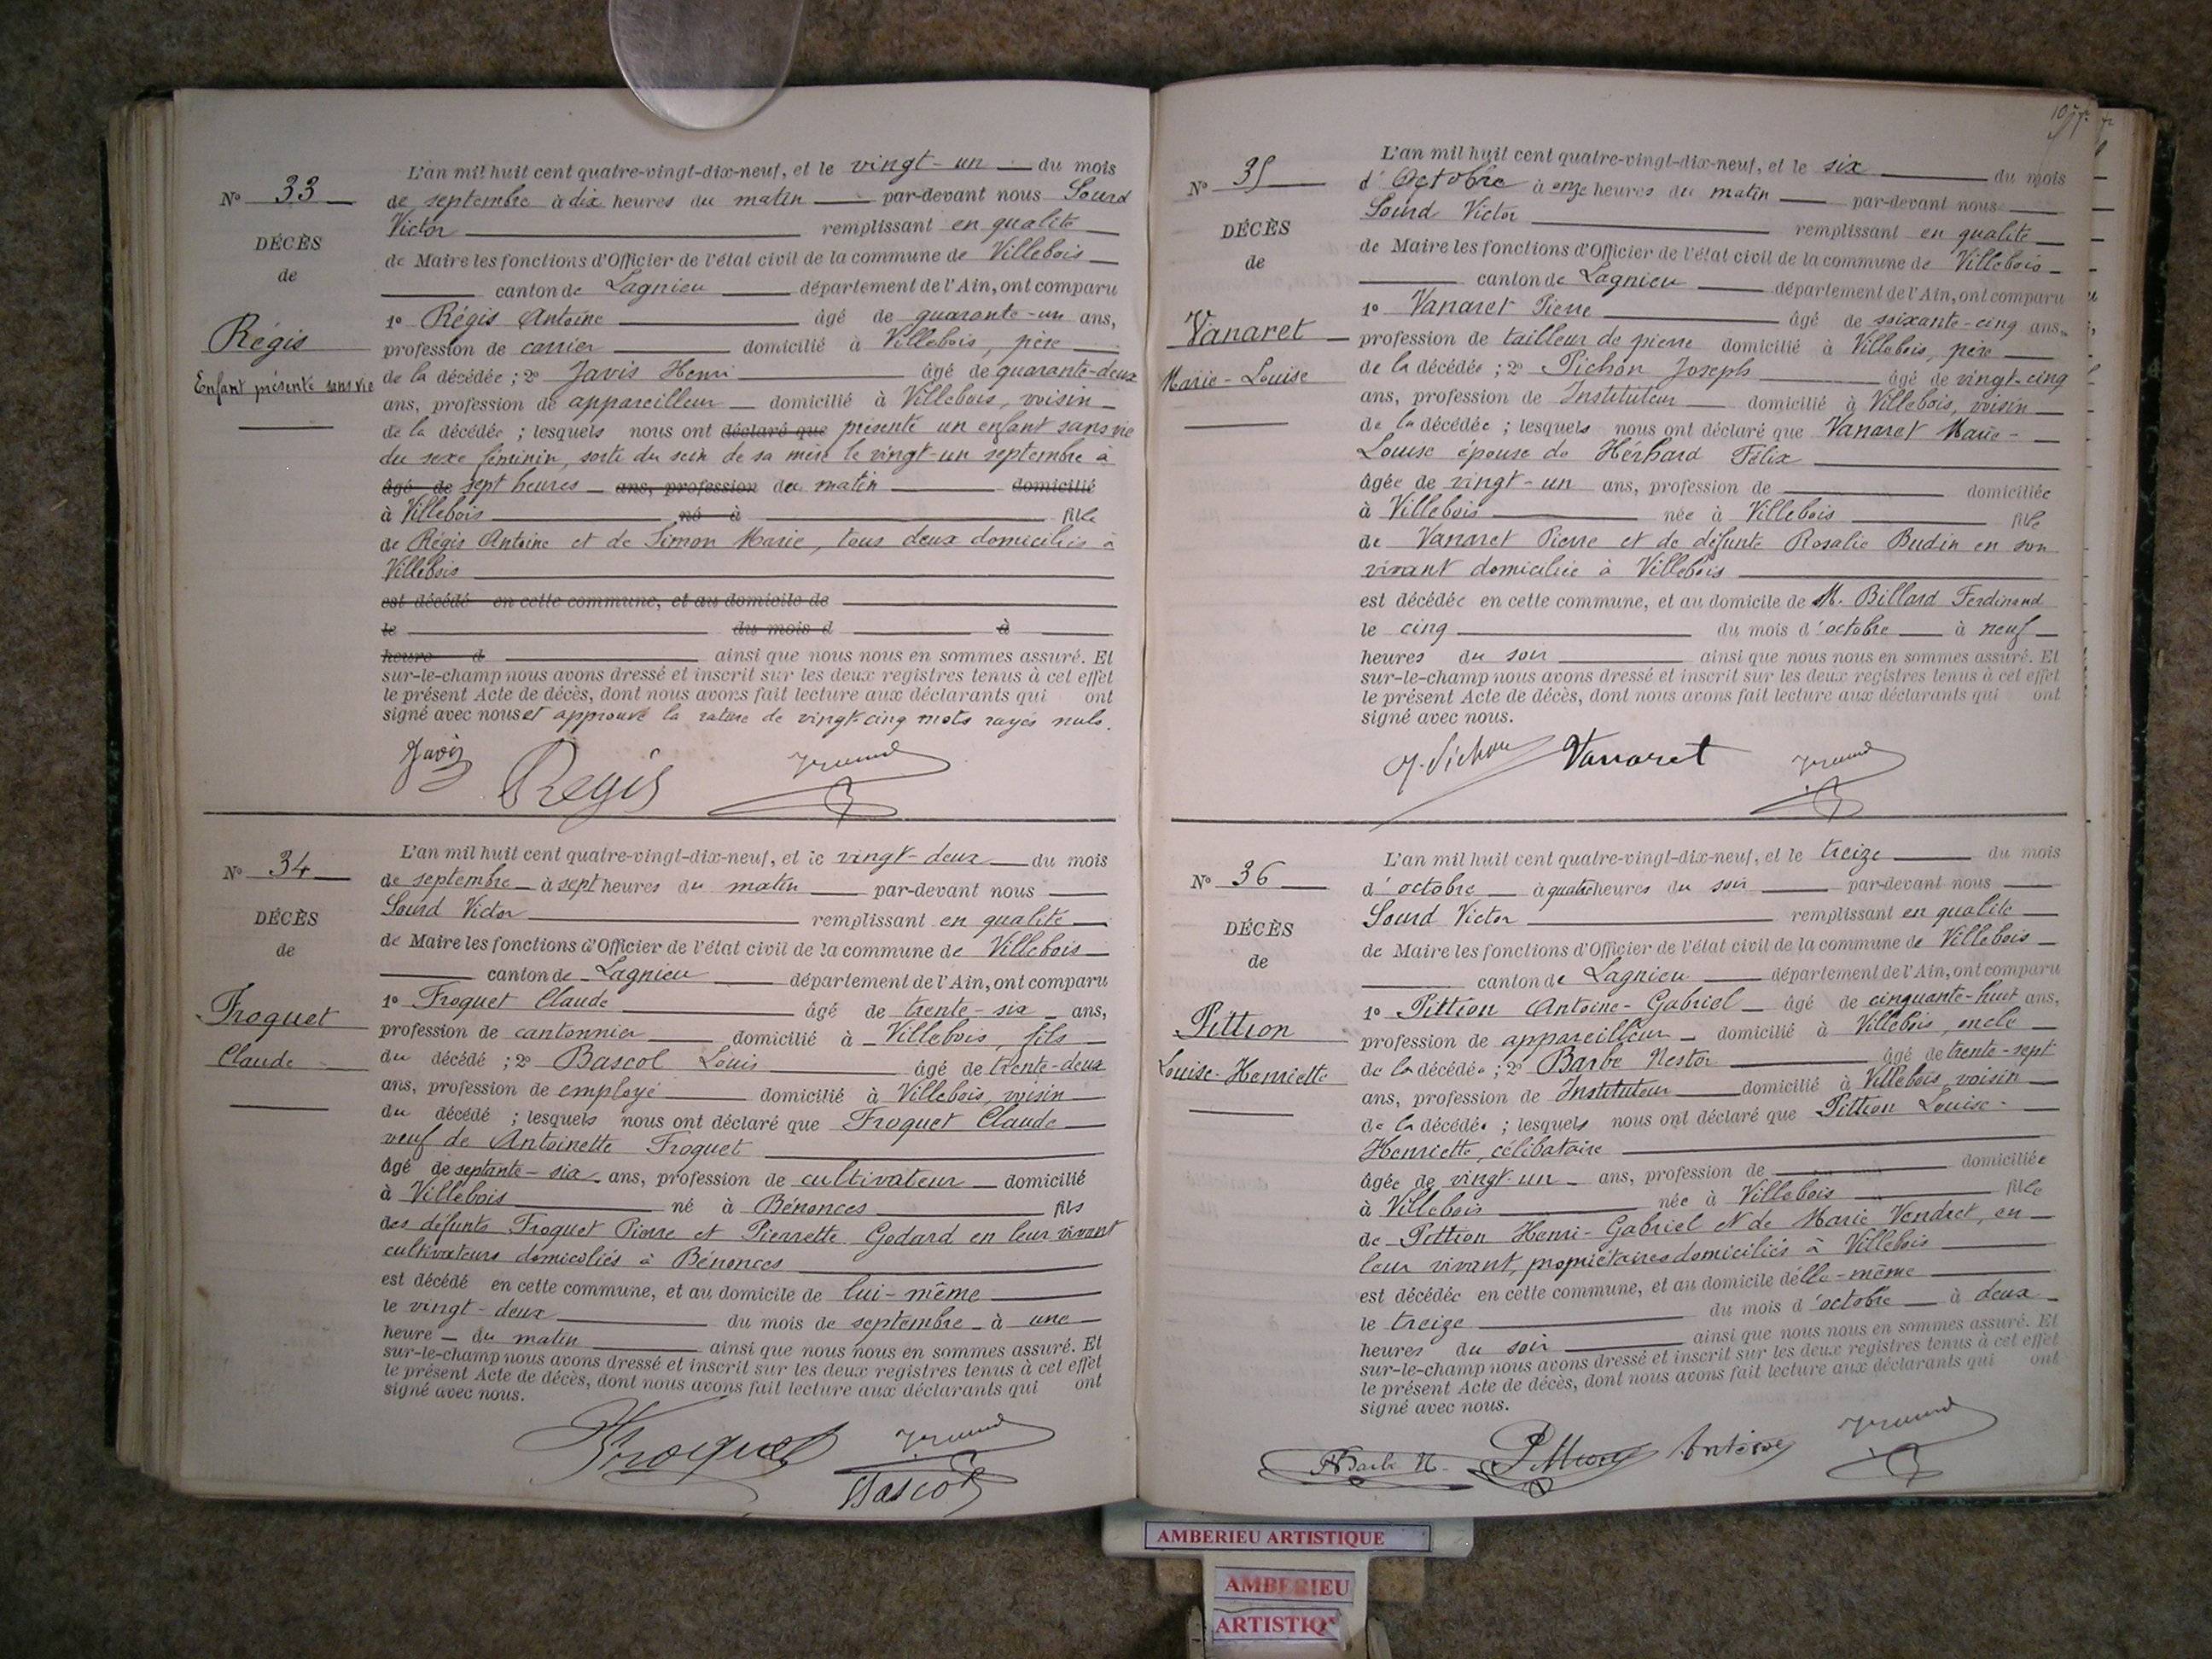 N° 33
DÉCÈS
de
Régis
Enfant présenté sans vie
L'an mil huit cent quatre-vingt-dix-neuf, et le vingt-un du mois
de septembre à dix heures du matin par-devant nous Sourd
Victor remplissant en qualité
de Maire les fonctions d'Officier de l'état civil de la commune de Villebois
canton de Lagnieu département de l'Ain, ont comparu
1° Régis Antoine âgé de quarante-un ans,
profession de carrier domicilié à Villebois, père
de la décédée ; 2° Javis Henri âgé de quarante-deux
ans, profession de appareilleur domicilié à Villebois, voisin
de la décédée ; lesquels nous ont déclaré que présenté un enfant sans vie
du sexe féminin, sorti du sein de sa mère le vingt-un septembre à
âgé de sept heures ans, profession du matin domicilié
à Villebois né à fille
de Régis Antoine et de Simon Marie, tous deux domiciliés à
Villebois
est décédé en cette commune, et au domicile de
le du mois d à
heure d ainsi que nous nous en sommes assuré. Et
sur-le-champ nous avons dressé et inscrit sur les deux registres tenus à cet effet
le présent Acte de décès, dont nous avons fait lecture aux déclarants qui ont
signé avec nous et approuvé la rature de vingt-cinq mots rayés nuls.
Javis Régis
N° 34
DÉCÈS
de
Froquet
Claude
L'an mil huit cent quatre-vingt-dix-neuf, et le vingt-deux du mois
de septembre à sept heures du matin par-devant nous
Sourd Victor remplissant en qualité
de Maire les fonctions d'Officier de l'état civil de la commune de Villebois
canton de Lagnieu département de l'Ain, ont comparu
1° Froquet Claude âgé de trente-six ans,
profession de cantonnier domicilié à Villebois, fils
du décédé ; 2° Bascol Louis âgé de trente-deux
ans, profession de employé domicilié à Villebois, voisin
du décédé ; lesquels nous ont déclaré que Froquet Claude
veuf de Antoinette Froquet
âgé de septante-six ans, profession de cultivateur domicilié
à Villebois né à Bénonces fils
des défunts Froquet Pierre et Pierrette Godard en leur vivant
cultivateurs domiciliés à Bénonces
est décédé en cette commune, et au domicile de lui-même
le vingt-deux du mois de septembre à une
heure du matin ainsi que nous nous en sommes assuré. Et
sur-le-champ nous avons dressé et inscrit sur les deux registres tenus à cet effet
le présent Acte de décès, dont nous avons fait lecture aux déclarants qui ont
signé avec nous.
Froquet
Bascol
N° 35
DÉCÈS
de
Vanaret
Marie-Louise
L'an mil huit cent quatre-vingt-dix-neuf, et le six du mois
d'Octobre à onze heures du matin par-devant nous
Sourd Victor remplissant en qualité
de Maire les fonctions d'Officier de l'état civil de la commune de Villebois
canton de Lagnieu département de l'Ain, ont comparu
1° Vanaret Pierre âgé de soixante-cinq ans,
profession de tailleur de pierre domicilié à Villebois, père
de la décédée ; 2° Pichon Joseph âgé de vingt-cinq
ans, profession de Instituteur domicilié à Villebois, voisin
de la décédée ; lesquels nous ont déclaré que Vanaret Marie-
Louise épouse de Herhard Félix
âgée de vingt-un ans, profession de domiciliée
à Villebois née à Villebois fille
de Vanaret Pierre et de défunte Rosalie Budin en son
vivant domiciliée à Villebois
est décédée en cette commune, et au domicile de M. Billard Ferdinand
le cinq du mois d'octobre à neuf
heures du soir ainsi que nous nous en sommes assuré. Et
sur-le-champ nous avons dressé et inscrit sur les deux registres tenus à cet effet
le présent Acte de décès, dont nous avons fait lecture aux déclarants qui ont
signé avec nous.
J. Pichon Vanaret
N° 36
DÉCÈS
de
Pittion
Louise-Henriette
L'an mil huit cent quatre-vingt-dix-neuf, et le treize du mois
d'octobre à quatre heures du soir par-devant nous
Sourd Victor remplissant en qualité
de Maire les fonctions d'Officier de l'état civil de la commune de Villebois
canton de Lagnieu département de l'Ain, ont comparu
1° Pittion Antoine-Gabriel âgé de cinquante-huit ans,
profession de appareilleur domicilié à Villebois, oncle
de la décédée ; 2° Barbe Nestor âgé de trente-sept
ans, profession de Instituteur domicilié à Villebois, voisin
de la décédée ; lesquels nous ont déclaré que Pittion Louise-
Henriette, célibataire
âgée de vingt-un ans, profession de domiciliée
à Villebois née à Villebois fille
de Pittion Henri-Gabriel et de Marie Vendret, en
leur vivant, propriétaires domiciliés à Villebois
est décédée en cette commune, et au domicile d'elle-même
le treize du mois d'octobre à deux
heures du soir ainsi que nous nous en sommes assuré. Et
sur-le-champ nous avons dressé et inscrit sur les deux registres tenus à cet effet
le présent Acte de décès, dont nous avons fait lecture aux déclarants qui ont
signé avec nous.
Barbe N. Pittion Antoine
AMBERIEU ARTISTIQUE
AMBERIEU
ARTISTIQ